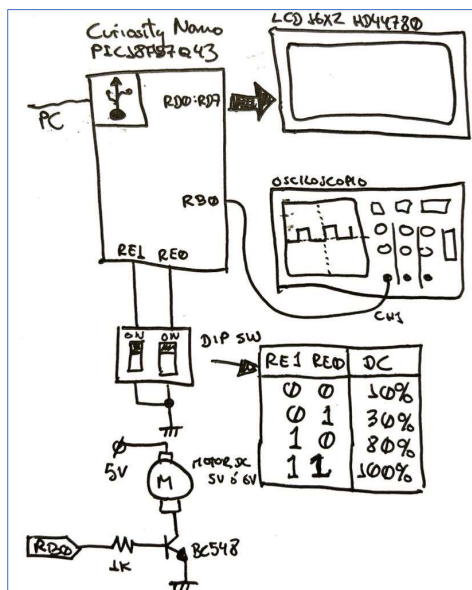 Curiosity Nano
PIC18F57Q43
LCD 16X2 HD44780
PC
RD0:RD7
RB0
RE1 RE0
OSCILOSCOPIO
CH1
ON ON
DIP SW
RE1 RE0 DC
0 0 10%
0 1 30%
1 0 80%
1 1 100%
5V
M
MOTOR DC
5V ó 6V
RB0
1K
BC548